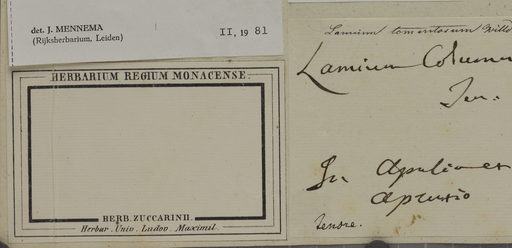 det. J. MENNEMA
(Rijksherbarium, Leiden)
II, 19 81
HERBARIUM REGIUM MONACENSE.
HERB. ZUCCARINII.
Herbar. Univ. Ludov. Maximil.
Lamium tomentosum Willd
Lamium Column
Ten.
In Apulia et
Aprutio
tenore.